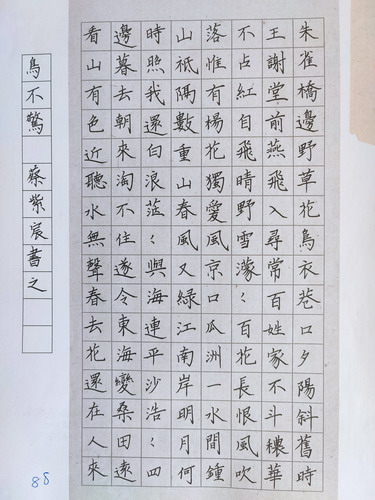 朱雀橋邊野草花烏衣巷口夕陽斜舊時
王謝堂前燕飛入尋常百姓家不斗穠華
不占紅自飛晴野雪濛〻百花長恨風吹
落惟有楊花獨愛風京口瓜洲一水間鍾
山祇隔數重山春風又綠江南岸明月何
時照我還白浪茫〻與海連平沙浩〻四
邊暮去朝來淘不住遂令東海變桑田遠
看山有色近聽水無聲春去花還在人來
鳥不驚 蔡紫宸書之
88